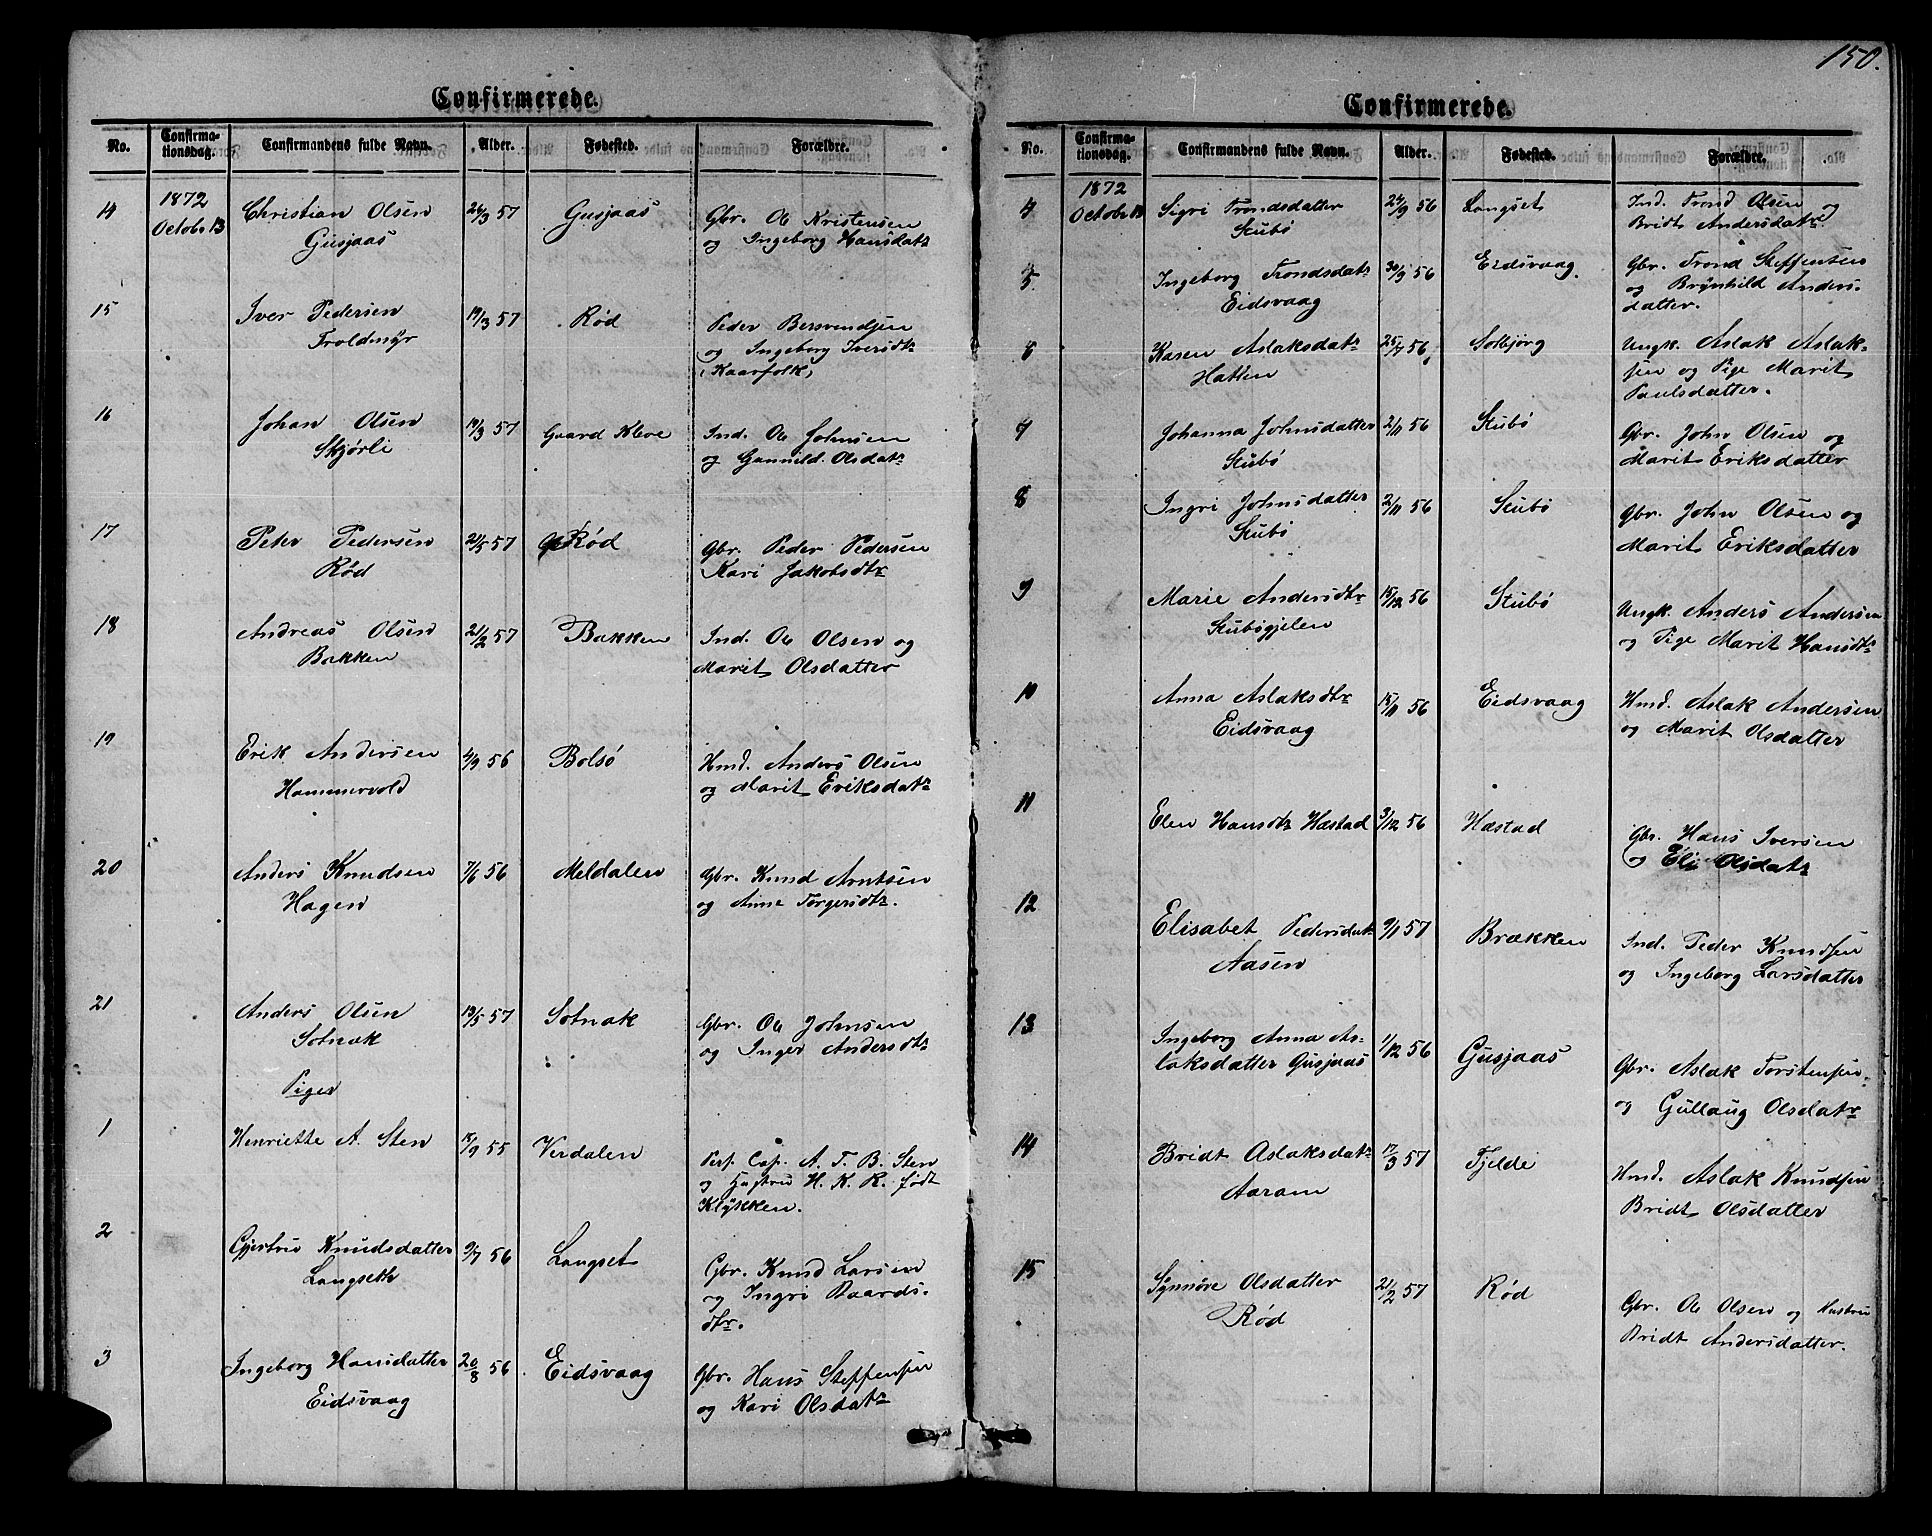 Confirmerede.
No.
Confirmationsdag.
Confirmandens fulde Navn.
Alder.
Fødested.
Forældre.
14
1872
Octobr 13
Christian Olsen
Gusjaas
26/3 57
Gusjaas
Gbr. Ole Kristensen
og Ingeborg Hansdatr
15
Iver Pedersen
Troldmyr
19/3 57
Rød
Peder Bersvendsen
og Ingeborg Iversdtr
(Kaarfolk)
16
Johan Olsen
Skjørli
19/3 57
Gaard Kleve
Ind. Ole Johnsen
og Gunnild Olsdatr
17
Peter Pedersen
Rød
21/5 57
Rød
Gbr. Peder Pedersen
Kari Jakobsdtr
18
Andreas Olsen
Bakken
21/2 57
Bakken
Ind. Ole Olsen og
Marit Olsdatter
19
Erik Andersen
Hammervold
4/9 56
Bolsø
Hmd. Anders Olsen
og Marit Eriksdatr
20
Anders Knudsen
Hagen
7/6 56
Meldalen
Gbr. Knud Arntsen
og Anne Torgersdtr.
21
Anders Olsen
Sotnak
13/5 57
Sotnak
Gbr. Ole Johnsen
og Inger Andersdtr
Piger
1
Henriette A. Sten
15/9 55
Verdalen
Perf. Cap. A. T. B. Sten
og Hustru H. K. R. født
Klykken.
2
Gjertru Knudsdatter
Langseth
9/7 56
Langset
Gbr. Knud Larsen
og Ingri Baards-
dtr.
3
Ingeborg Hansdatter
Eidsvaag
20/8 56
Eidsvaag
Gbr. Hans Steffensen
og Kari Olsdatr
150.
Confirmerede.
No.
Confirmationsdag.
Confirmandens fulde Navn.
Alder.
Fødested.
Forældre.
4
1872
Octobr 13
Sigri Trondsdatter
Stubø
24/9 56
Langset
Ind. Trond Olsen og
Bridt Andersdatr
5
Ingeborg Trondsdatr
Eidsvaag
30/9 56
Eidsvaag.
Gbr. Trond Steffensen
og Brynhild Anders-
datter.
6
Karen Aslaksdatr
Hatten
25/7 56
Solbjørg
Ungk. Aslak Aslak-
sen og Pige Marit
Paulsdatter.
7
Johanna Johnsdatter
Stubø
2/11 56
Stubø
Gbr. John Olsen og
Marit Eriksdatter
8
Ingri Johnsdatter
Stubø
2/11 56
Stubø
Gbr. John Olsen og
Marit Eriksdatter
9
Marie Andersdtr
Stubøgjelen
15/12 56
Stubø
Ungk. Anders Andersen
og Pige Marit Hansdtr
10
Anna Aslaksdtr
Eidsvaag
15/11 56
Eidsvaag
Hmd. Aslak Andersen
og Marit Olsdatter
11
Elen Hansdtr Hæstad
3/12 56
Hæstad
Gbr. Hans Iversen
og Eli Olsdatr
12
Elisabet Pedersdatr
Aasen
9/1 57
Brækken
Ind. Peder Knudsen
og Ingeborg Larsdatter
13
Ingeborg Anna As-
laksdatter Gusjaas
1/12 56
Gusjaas
Gbr. Aslak Torstensen
og Gullaug Olsdatr
14
Bridt Aslaksdatr
Aaram
17/3 57
Tjelde
Hmd. Aslak Knudsen
Bridt Olsdatter
15
Synnøve Olsdatter
Rød
21/2 57
Rød
Gbr. Ole Olsen og Hustru
Bridt Andersdatter.